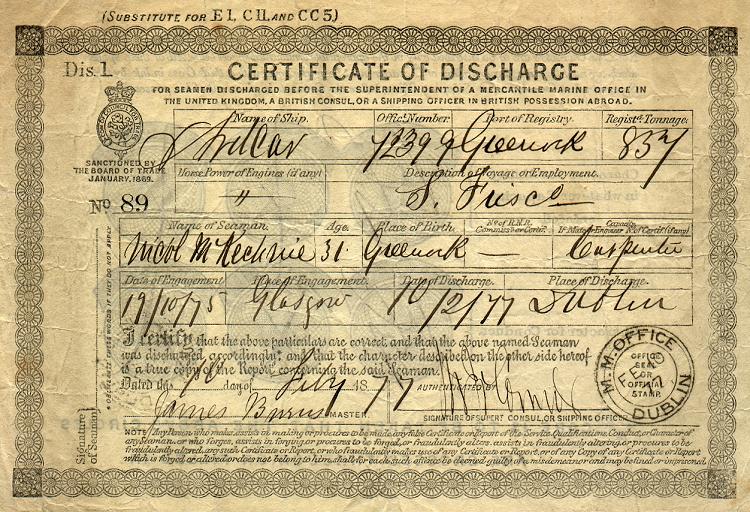 (SUBSTITUTE FOR E 1, C 11, AND CC 5)
Dis. 1.
CERTIFICATE OF DISCHARGE
FOR SEAMEN DISCHARGED BEFORE THE SUPERINTENDENT OF A MERCANTILE MARINE OFFICE IN
THE UNITED KINGDOM, A BRITISH CONSUL, OR A SHIPPING OFFICER IN BRITISH POSSESSION ABROAD.
SANCTIONED BY
THE BOARD OF TRADE
JANUARY, 1869.
No 89
Name of Ship. Offic! Number Port of Registry. Regist? Tonnage.
72399 Greenock 837
Horse Power of Engines (if any) Description of Voyage or Employment.
" S. Frisco
Name of Seaman. Age. Place of Birth. No of R.N.R. Commissn or Certif. Capacity If Mate or Engineer No of Certif. (if any)
Nicol McKechnie 31 Greenock — Carpenter
Date of Engagement Place of Engagement. Date of Discharge. Place of Discharge.
19/10/75 Glasgow 10/2/77 Dublin
I certify that the above particulars are correct, and that the above named Seaman
was discharged accordingly, and that the character described on the other side hereof
is a true copy of the Report concerning the said Seaman.
Dated this 10 day of Feby 1877 AUTHENTICATED BY
James Burns MASTER.
SIGNATURE OF SUPERT CONSUL, OR SHIPPING OFFICER
M.M. OFFICE DUBLIN
OFFICE SEAL OR OFFICIAL STAMP.
Signature of Seaman
NOTE. Any Person who makes, assists in making or procures to be made, any false Certificate or Report of the Service, Qualifications, Conduct, or Character of
any Seaman, or who forges, assists in forging, or procures to be forged, or fraudulently alters, assists in fraudulently altering, or procures to be
fraudulently altered, any such Certificate or Report, or who fraudulently makes use of any Certificate or Report, or of any Copy of any Certificate or Report
which is forged, or altered, or does not belong to him, shall for each such offence be deemed guilty of a misdemeanor and may be fined or imprisoned.